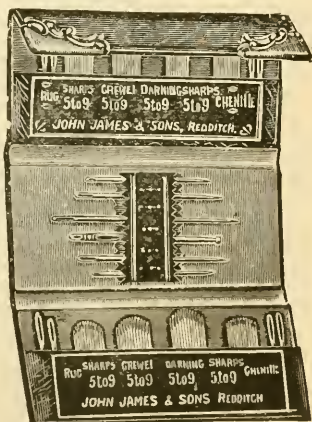 RUG SHARPS CREWEL DARNING SHARPS CHENILLE
5to9 5to9 5to9 5to9
JOHN JAMES & SONS, REDDITCH.
RUG SHARPS CREWEL DARNING SHARPS CHENILLE
5to9 5to9 5to9 5to9
JOHN JAMES & SONS REDDITCH